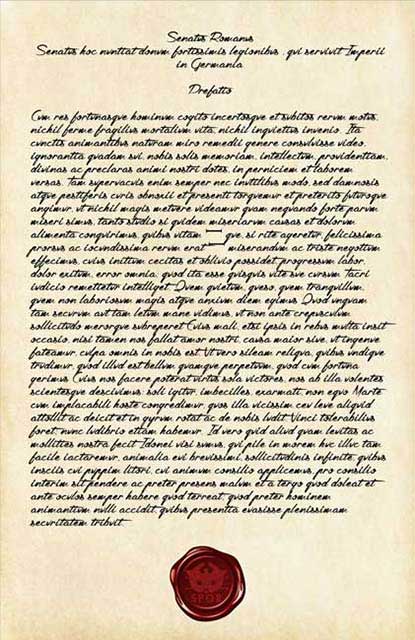 Senatus Romanus
Senatus hoc nuntiat donum fortissimis legionibus , qui servivit Imperii
in Germania
Prefatio
Cum res fortunasque hominum cogito incertosque et subitos rerum motus,
nichil ferme fragilius mortalium vita, nichil inquietius invenio. Ita
cunctis animantibus naturam miro remedii genere consuluisse video,
ignorantia quadam sui, nobis solis memoriam, intellectum, providentiam,
divinas ac preclaras animi nostri dotes, in perniciem et laborem
versas. Tam supervacuis enim semper nec inutilibus modo, sed damnosis
atque pestiferis curis obnoxii et presenti torquemur et preterito futuroque
angimur, ut nichil magis metuere videamur quam nequando forte parum
miseri simus, tanto studio si quidem miseriarum causas et dolorum
alimenta conquirimus, quibus vitam que, si rite ageretur, felicissima
prorsus ac iocundissima rerum erat miserandum ac triste negotium
effecimus, cuius initium cecitas et oblivio possidet, progressum labor,
dolor exitum, error omnia, quod ita esse quisquis vite sue cursum
iudicio remetietur intelliget. Quem quietum, queso, quem tranquillum,
quem non laboriosum magis atque anxium diem egimus? Quod unquam
tam securum aut tam letum mane vidimus, ut non ante crepusculum
sollicitudo merorque subreperet? Cuius mali, etsi ipsis in rebus multa insit
occasio, nisi tamen nos fallat amor nostri, causa maior sive, ut ingenue
fateamur, culpa omnis in nobis est. Ut vero sileam reliqua, quibus undique
trudimur, quod illud est bellum quamque perpetuum, quod cum fortuna
gerimus? Cuius nos facere poterat virtus sola victores, nos ab illa volentes
scientesque descivimus; soli igitur, imbecilles, exarmati, non equo Marte
cum implacabili hoste congredimur, quos illa vicissim ceu leve aliquid
attollit ac deicit et in gyrum rotat ac de nobis ludit. Vinci tolerabilius
foret, nunc ludibrio etiam habemur. Id vero quid aliud quam levitas ac
mollities nostra fecit? Idonei visi sumus, qui pile in morem huc illuc tam
facile iactaremur, animalia evi brevissimi, sollicitudinis infinite, quibus
insciis cui puppim litori, cui animum consilio applicemus, pro consilio
interim sit pendere ac preter presens malum et a tergo quod doleat et
ante oculos semper habere quod terreat, quod preter hominem
animantium nulli accidit, quibus presentia evasisse plenissimam
securitatem tribuit.
SPQR